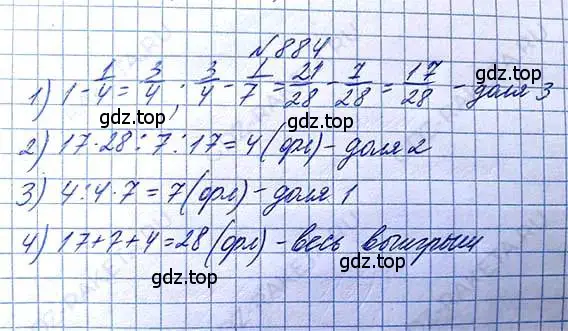 №884
1) 1 - 1/4 = 3/4 ; 3/4 - 1/7 = 21/28 - 7/28 = 17/28 - доля 3
2) 17·28:7:17=4(фл)-доля 2
3) 4:4·7=7(фл)-доля 1
4) 17+7+4=28(фл)-весь выигрыш
gdz.top
gdz.top
gdz.top
gdz.top
gdz.top
gdz.top
gdz.top